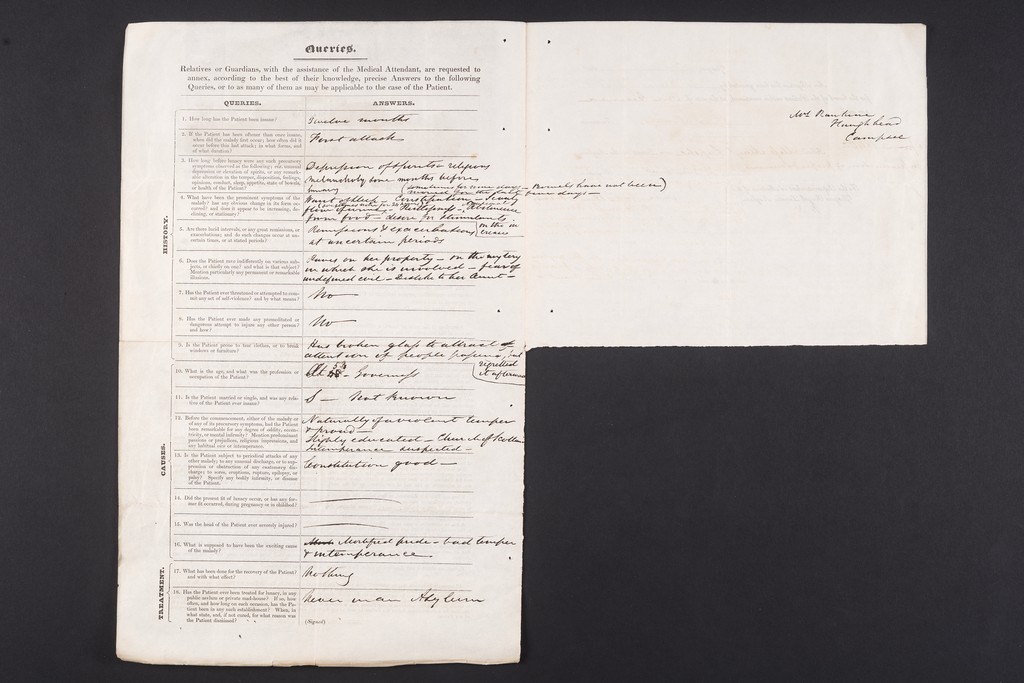 Queries.
Relatives or Guardians, with the assistance of the Medical Attendant, are requested to
annex, according to the best of their knowledge, precise Answers to the following
Queries, or to as many of them as may be applicable to the case of the Patient.
QUERIES.
ANSWERS.
HISTORY.
1. How long has the Patient been insane?
Twelve months
2. If the Patient has been oftener than once insane,
when did the malady first occur; how often did it
occur before this last attack; in what forms, and
of what duration?
First attack
3. How long before insanity were any such precursory
symptoms observed as the following: viz. unusual
depression or elevation of spirits, or any remark-
able alteration in the temper, disposition, feelings,
opinions, conduct, sleep, appetite, state of bowels,
or health of the Patient?
Depression of spirits & religious
melancholy some months before
insanity
4. What have been the prominent symptoms of the
malady? has any obvious change in its form oc-
curred? and does it appear to be increasing, de-
clining, or stationary?
(sometimes for some days — Bowels have not been
moved for the last four days —)
Want of sleep — Constipation —
from food — desire for Stimulants
5. Are there lucid intervals, or any great remissions, or
exacerbations; and do such changes occur at un-
certain times, or at stated periods?
Remissions & exacerbations
at uncertain periods
on the in
crease
6. Does the Patient rave indifferently on various sub-
jects, or chiefly on one? and what is that subject?
Mention particularly any permanent or remarkable
illusions.
Raves on her property — on the mystery
in which she is involved — fear of
undefined evil — Dislike to her Aunt —
7. Has the Patient ever threatened or attempted to com-
mit any act of self-violence? and by what means?
No —
8. Has the Patient ever made any premeditated or
dangerous attempt to injure any other person?
and how?
No —
9. Is the Patient prone to tear clothes, or to break
windows or furniture?
Has broken glass to attract
attention of people passing, but
regretted
it afterwards
10. What is the age, and what was the profession or
occupation of the Patient?
Governess
11. Is the Patient married or single, and was any rela-
tive of the Patient ever insane?
S — Not Known
CAUSES.
12. Before the commencement, either of the malady or
of any of its precursory symptoms, had the Patient
been remarkable for any degree of oddity, eccen-
tricity, or mental infirmity? Mention predominant
passions or prejudices, religious impressions, and
any habitual vice or intemperance.
Naturally of a violent temper
& proud —
Highly educated — Church of Scotland
Intemperance suspected —
13. Is the Patient subject to periodical attacks of any
other malady; to any unusual discharge, or to sup-
pression or obstruction of any customary dis-
charge; to sores, eruptions, rupture, epilepsy, or
palsy? Specify any bodily infirmity, or disease
of the Patient.
Constitution good —
14. Did the present fit of lunacy occur, or has any for-
mer fit occurred, during pregnancy or in childbed?
15. Was the head of the Patient ever severely injured?
16. What is supposed to have been the exciting cause
of the malady?
Mortified pride — bad temper
& intemperance
TREATMENT.
17. What has been done for the recovery of the Patient?
and with what effect?
Nothing
18. Has the Patient ever been treated for lunacy, in any
public asylum or private mad-house? If so, how
often, and how long on each occasion, has the Pa-
tient been in any such establishment? When, in
what state, and, if not cured, for what reason was
the Patient dismissed?
Never in an Asylum
(Signed)
Haughhead
Campsie